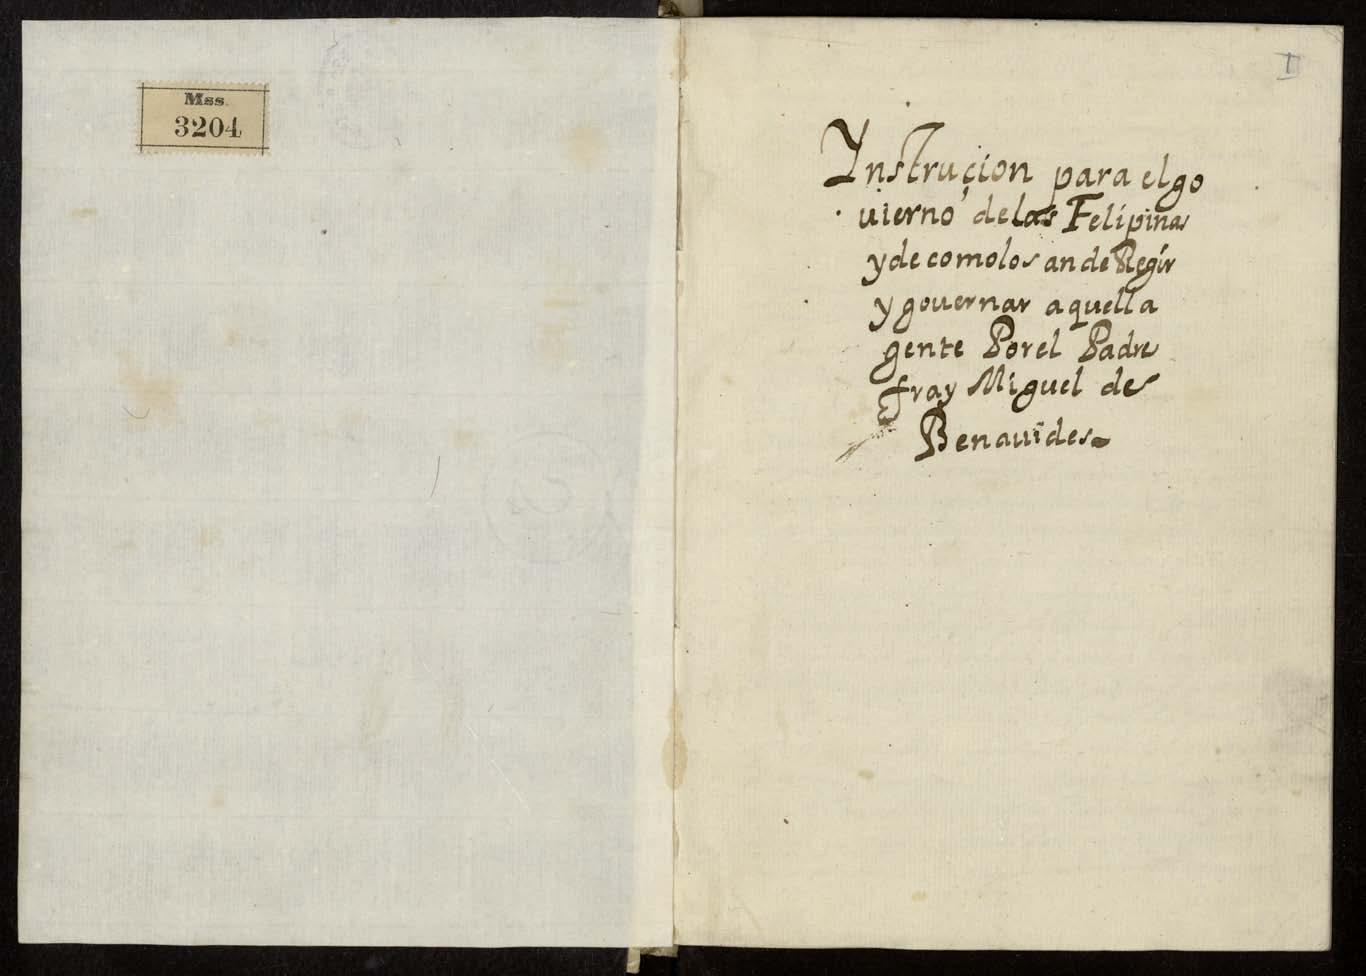 Mss.
3204
I
Ynstruçion para el go
uierno de las Felipinas
y de como los an de Regir
y gouernar aquella
gente Por el Padre
fray Miguel de
Benauides